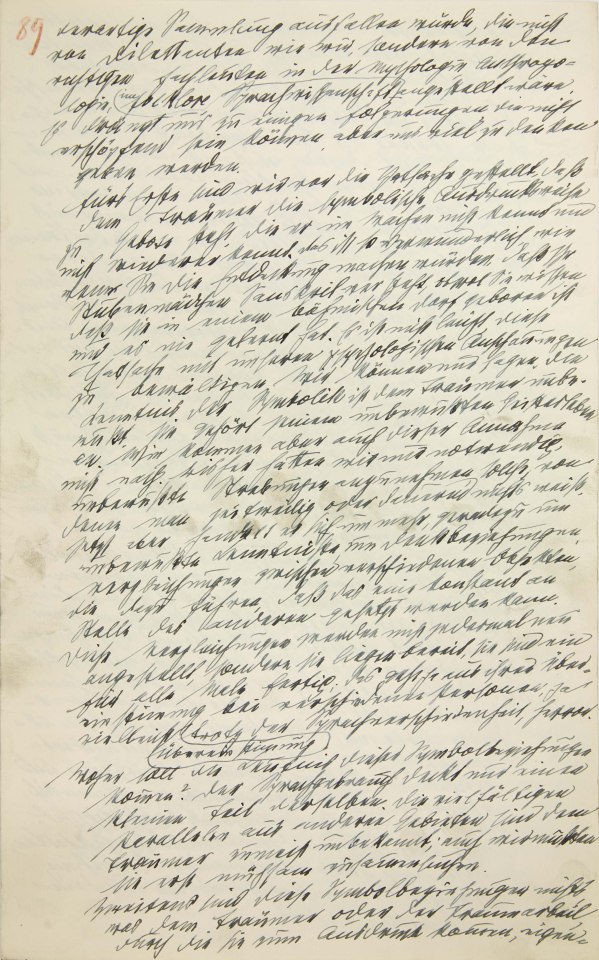 89
derartige Sammlung ausfallen würde, die nicht
von Dilettanten wie wir, sondern von den
richtigen Fachleuten in der Mythologie Anthropo-
logie, im Folklore Sprachwissenschaft angestellt wäre.
Es drängt uns zu einigen Folgerungen die nicht
erschöpfend sein können, aber uns viel zu denken
geben werden.
Fürs Erste sind wir vor die Thatsache gestellt, daß
dem Träumer die symbolische Ausdrucksweise
zu Gebote steht, die er im Wachen nicht kennt und
nicht wiedererkennt. Das ist so verwunderlich wie
wenn Sie die Entdeckung machen würden, daß Ihr
Stubenmädchen Sanskrit versteht, obwol Sie wissen
daß sie in einem böhmischen Dorf geboren ist
und es nie gelernt hat. Es ist nicht leicht diese
Thatsache mit unseren psychologischen Anschauungen
zu bewältigen. Wir können nur sagen, die
Kenntnis der Symbolik ist dem Träumer unbe-
wußt, sie gehört seinem unbewußten Geistesleben
an. Wir kommen aber auch dieser Annahme
nicht nach. Bisher hatten wir nur notwendig,
unbewußte Strebungen anzunehmen, solche, von
denen man zeitweilig oder dauernd nichts weiß.
Jetzt aber handelt es sich um mehr, geradezu um
unbewußte Kenntnisse um Denkbeziehungen,
Vergleichungen zwischen verschiedenen Objekten,
die dazu führen, daß das eine konstant an
Stelle des anderen gesetzt werden kann.
Diese Vergleichungen werden nicht jedesmal neu
angestellt, sondern sie liegen bereit, sie sind ein
für alle Male fertig; das geht ja aus ihrer Über-
einstimmung bei verschiedenen Personen, ja
vielleicht trotz der Sprachverschiedenheit, hervor.
Übereinstimmung
Woher soll die Kenntnis dieser Symbolbeziehungen
kommen? Der Sprachgebrauch deckt nur einen
kleinen Teil derselben. Die vielfältigen
Parallelen aus anderen Gebieten sind dem
Träumer zumeist unbekannt; auch wir mußten
sie erst mühsam zusammensuchen.
Zweitens sind diese Symbolbeziehungen nichts
was dem Träumer oder der Traumarbeit
durch die sie zum Ausdruck kommen, eigen-